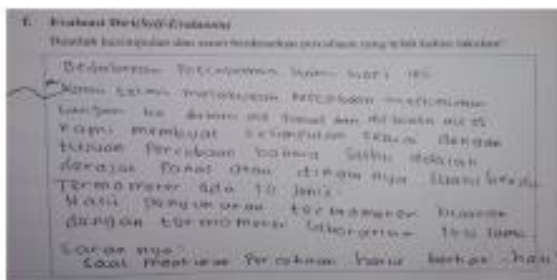 E. Evaluasi Diri (Self-Evaluation)
Buatlah kesimpulan dan saran berdasarkan percobaan yang telah kalian lakukan!
Berdasarkan Percobaan kami hari ini
Kami telah melakukan Percobaan
tangan ke dalam air hangat dan air es
kami membuat kesimpulan sesuai dengan
tujuan Percobaan bahwa Suhu adalah
derajat Panas atau dingin nya Suatu benda
Termometer ada 10 jenis.
Hasil Pengukuran termometer
dengan termometer laboratorium
Saran nya
Saat melakukan Percobaan harus hati